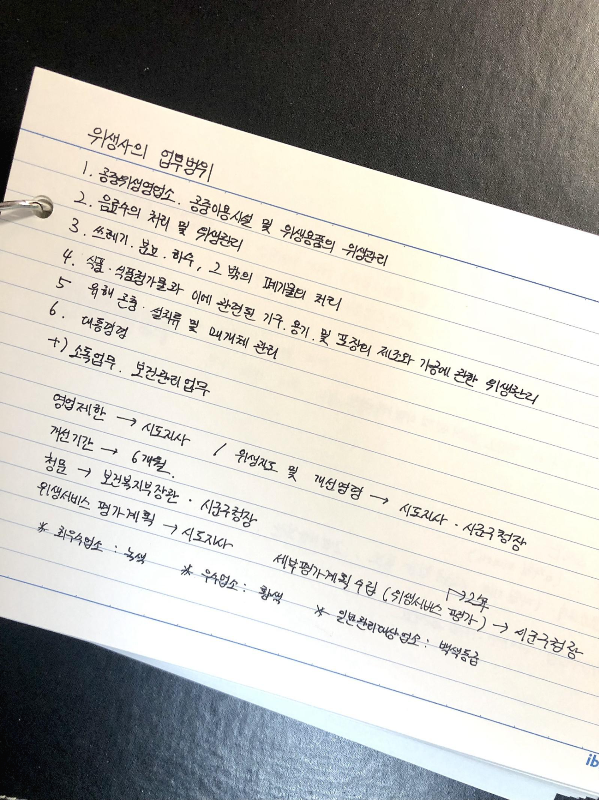 위생사의 업무범위
1. 공중위생영업소. 공중이용시설 및 위생용품의 위생관리
2. 음료수의 처리 및 위생관리
3. 쓰레기. 분뇨. 하수, 그 밖의 폐기물의 처리
4. 식품. 식품첨가물과 이에 관련된 기구. 용기. 및 포장의 제조와 가공에 관한 위생관리
5 유해 곤충. 설치류 및 매개체 관리
6. 대통령령
+) 소독업무. 보건관리업무
영업제한 → 시도지사 / 위생지도 및 개선명령 → 시도지사 · 시군구청장
개선기간 → 6개월.
청문 → 보건복지부장관 · 시군구청장
위생서비스 평가계획 → 시도지사 세부평가계획 수립 (위생서비스 평가) → 시군구청장
↱2년
* 최우수업소 : 녹색 * 우수업소 : 황색 * 일반관리대상업소 : 백색등급
ib